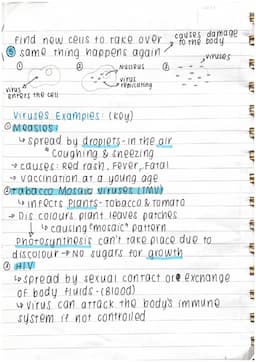 find new cells to take over → causes damage to the body
⑤ same thing happens again
① ② ③
nucleus
viruses
virus enters the cell
virus replicating
Viruses Examples: (key)
① Measles
↳ spread by droplets - in the air
* Coughing & sneezing
→ causes: Red rash, Fever, Fatal
→ vaccination at a young age
② Tabacco Mosaic Viruses (TMV)
↳ infects plants - tobacco & tomato
→ Discolours plant leaves patches
↳ causing "mosaic" pattern
photosynthesis can't take place due to
discolour → No sugars for growth
③ HIV
↳ spread by sexual contact or exchange
of body fluids - (Blood)
↳ virus can attack the body's immune
system if not controlled